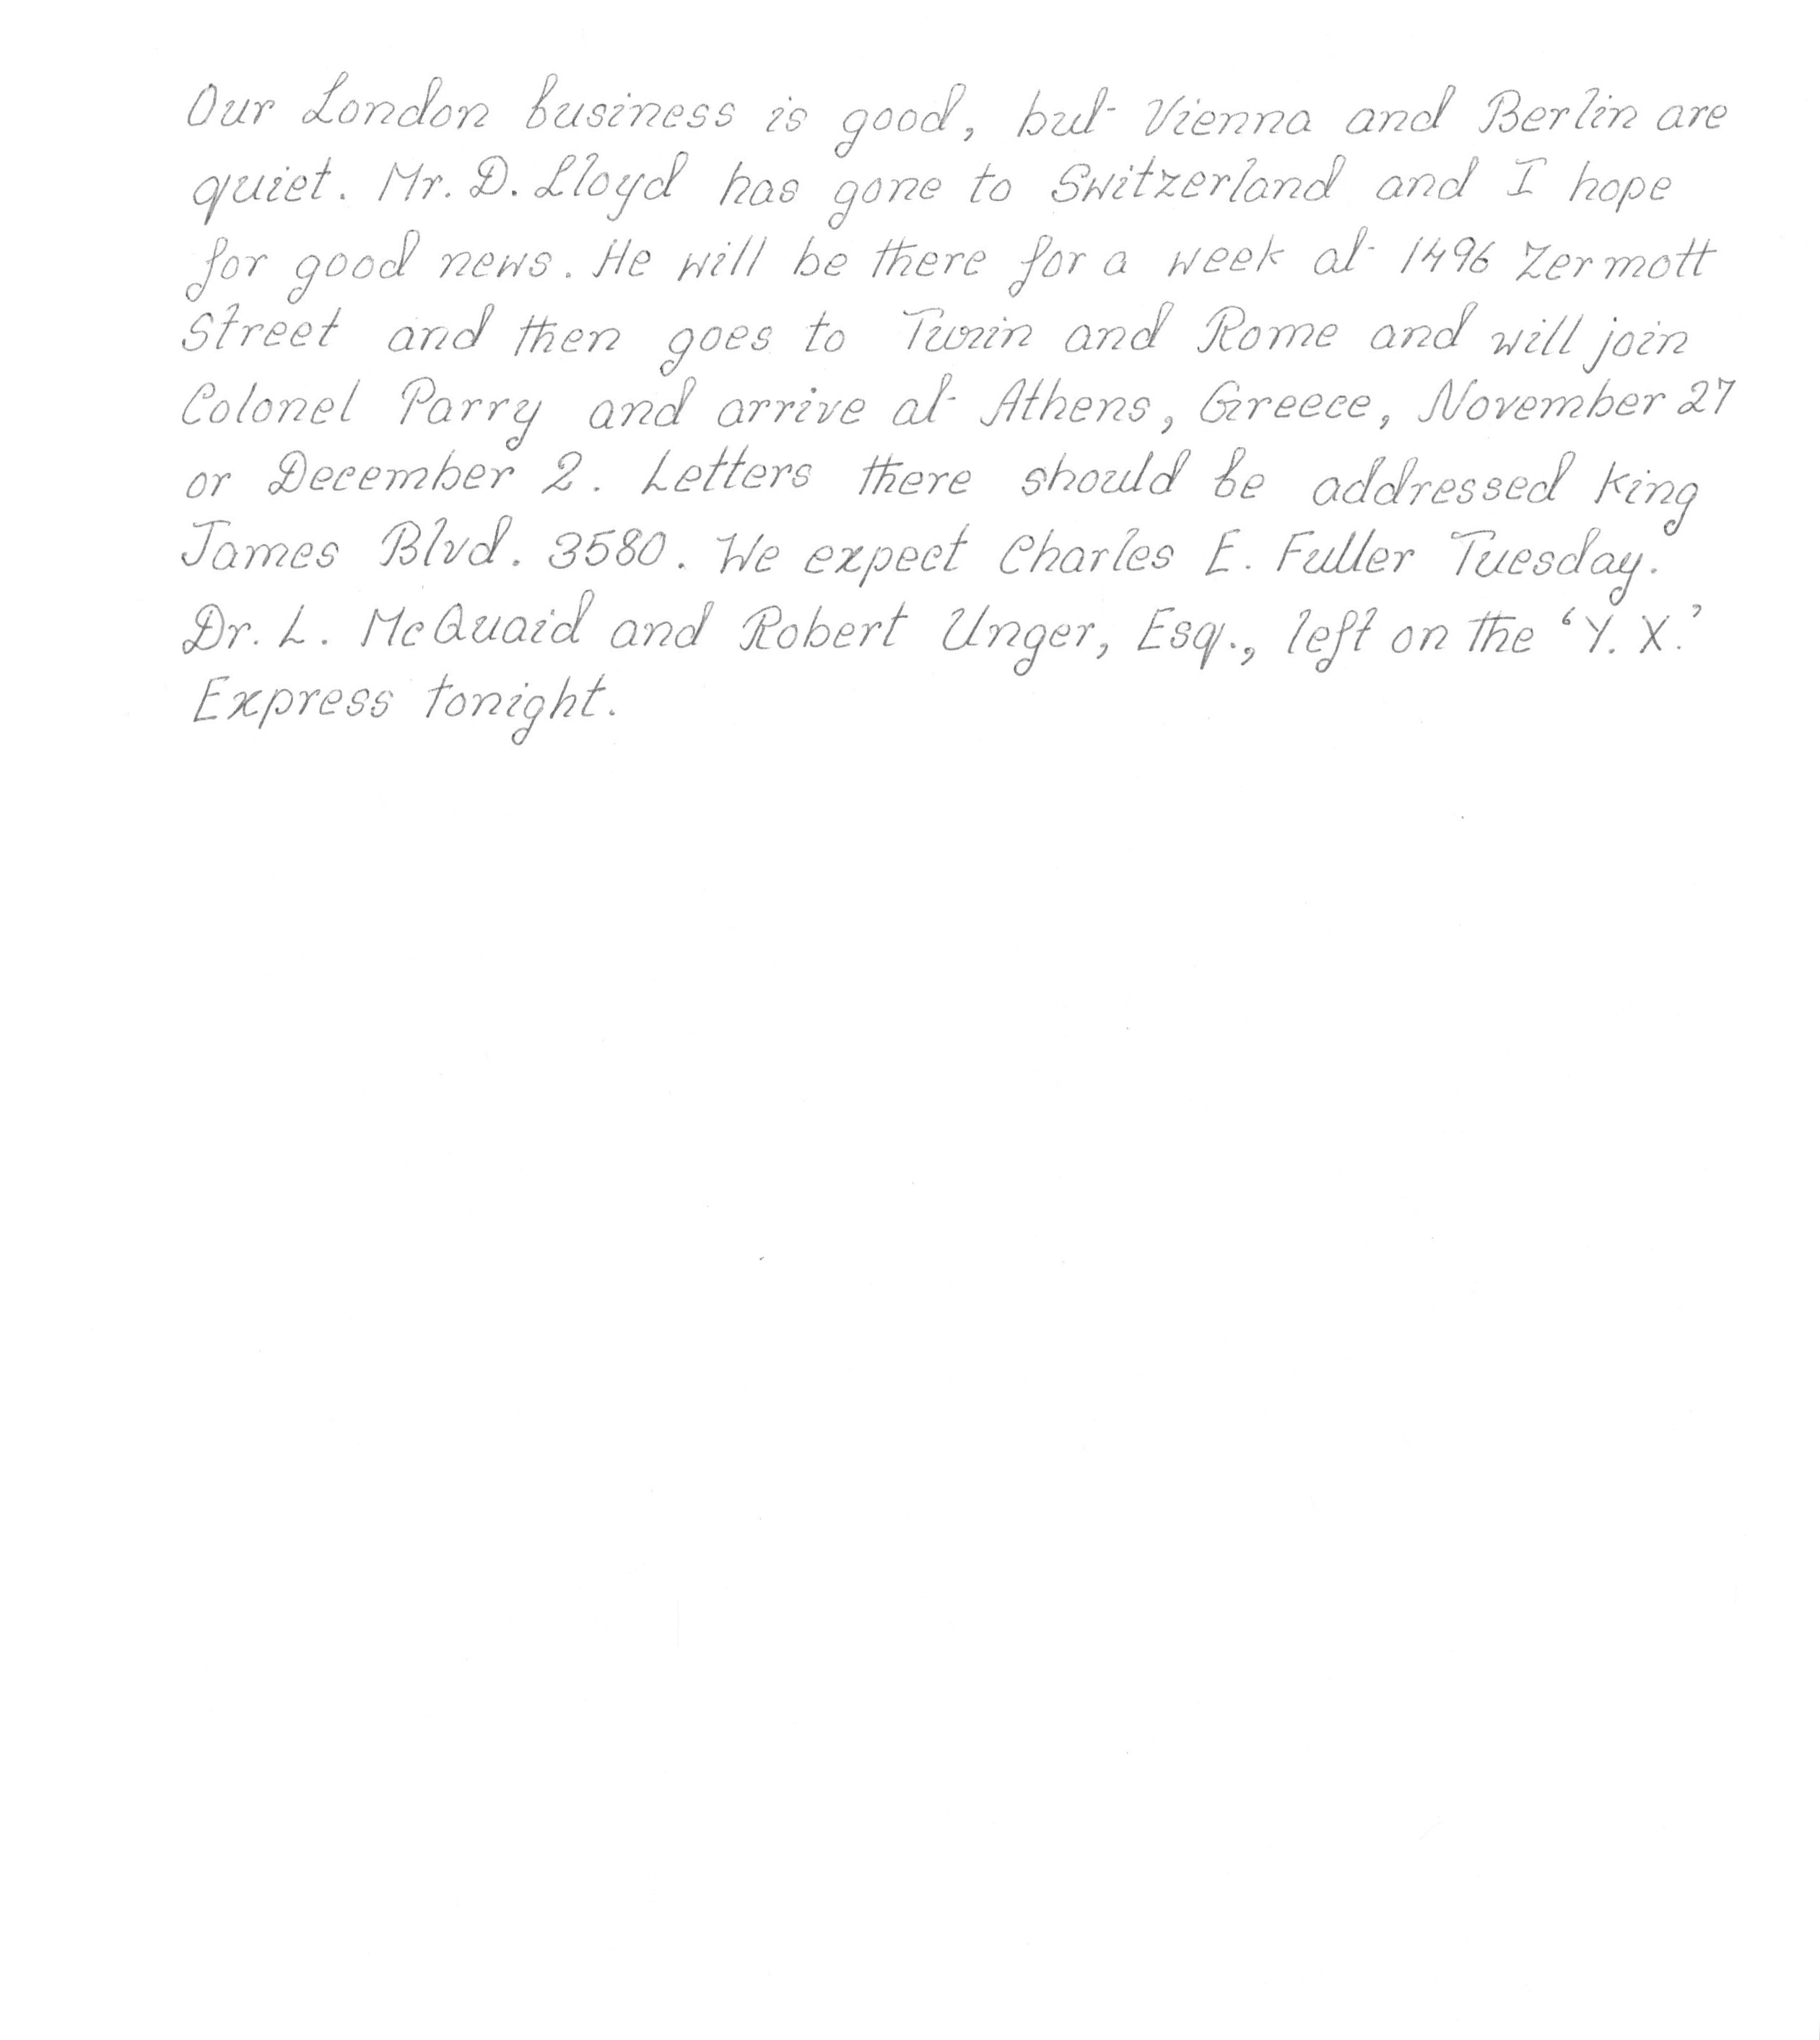 Our London business is good, but Vienna and Berlin are
quiet. Mr. D. Lloyd has gone to Switzerland and I hope
for good news. He will be there for a week at 1496 Zermott
Street and then goes to Turin and Rome and will join
Colonel Parry and arrive at Athens, Greece, November 27
or December 2. Letters there should be addressed King
James Blvd. 3580. We expect Charles E. Fuller Tuesday.
Dr. L. McQuaid and Robert Unger, Esq., left on the 'Y. X.'
Express tonight.